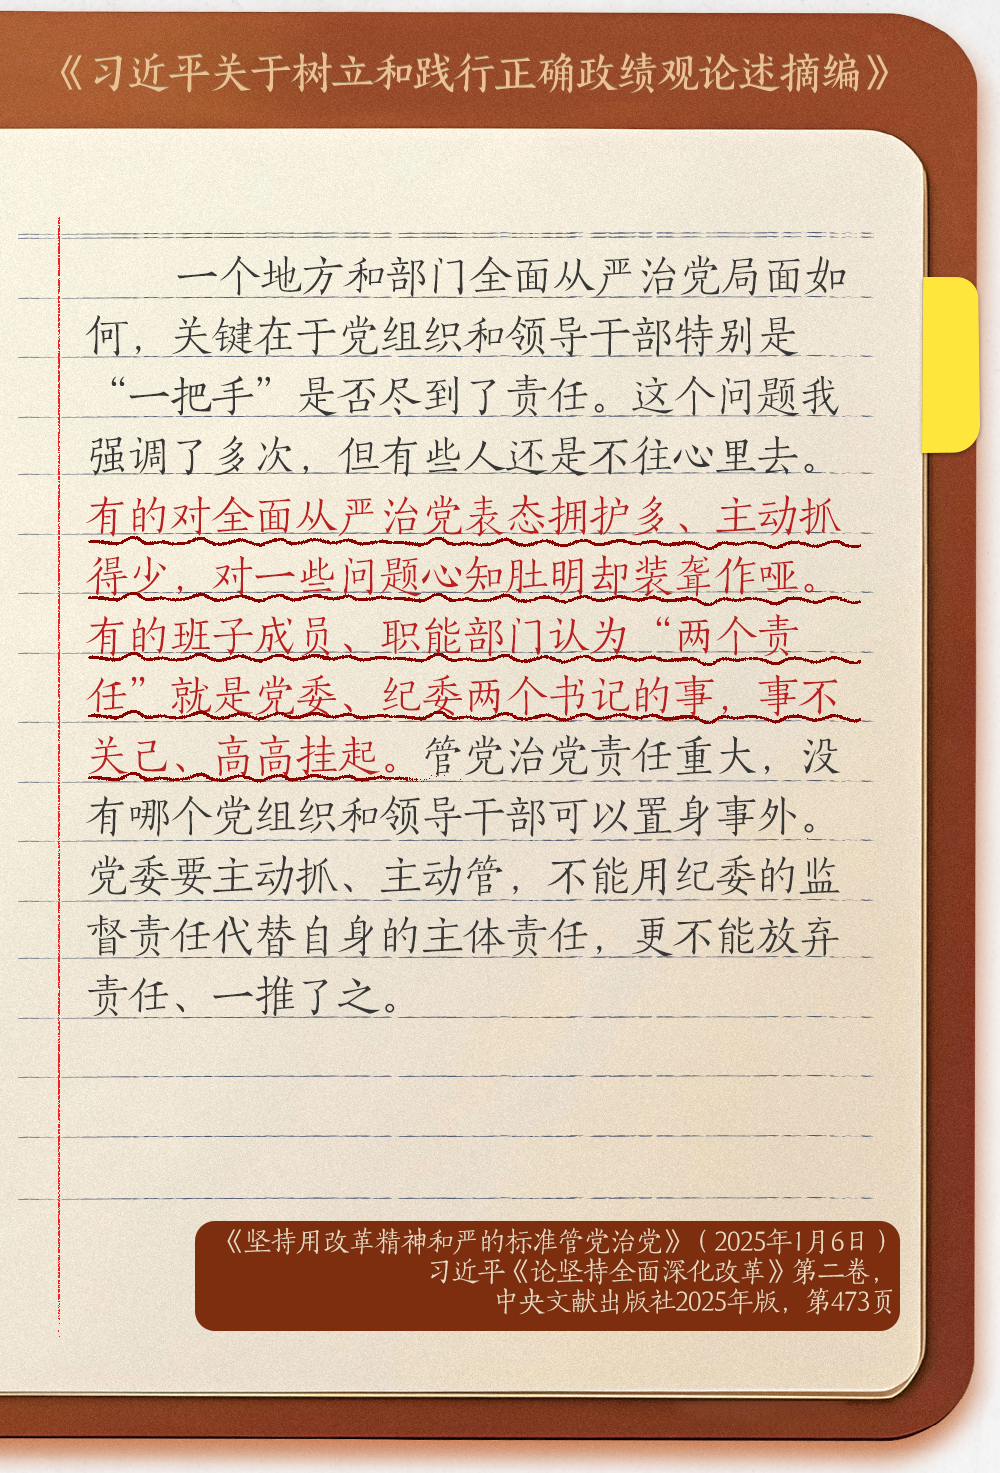 《习近平关于树立和践行正确政绩观论述摘编》
一个地方和部门全面从严治党局面如
何，关键在于党组织和领导干部特别是
“一把手”是否尽到了责任。这个问题我
强调了多次，但有些人还是不往心里去。
有的对全面从严治党表态拥护多、主动抓
得少，对一些问题心知肚明却装聋作哑。
有的班子成员、职能部门认为“两个责
任”就是党委、纪委两个书记的事，事不
关己、高高挂起。管党治党责任重大，没
有哪个党组织和领导干部可以置身事外。
党委要主动抓、主动管，不能用纪委的监
督责任代替自身的主体责任，更不能放弃
责任、一推了之。
《坚持用改革精神和严的标准管党治党》（2025年1月6日）
习近平《论坚持全面深化改革》第二卷，
中央文献出版社2025年版，第473页